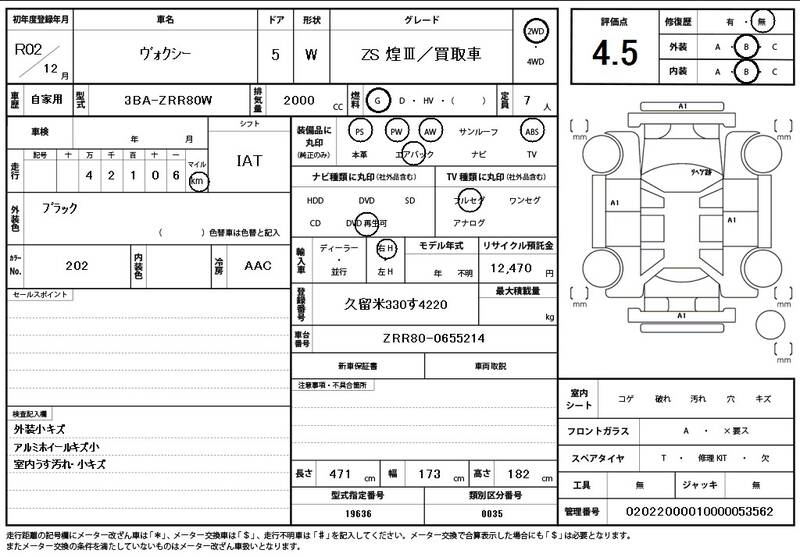 初年度登録年月 車名 ドア 形状 グレード 2WD ・ 4WD
R02／12月 ヴォクシー 5 W ZS 煌Ⅲ／買取車
評価点 4.5
修復歴 有 ・ 無
外装 A ・ B ・ C
内装 A ・ B ・ C
車歴 自家用 型式 3BA-ZRR80W 排気量 2000 CC 燃料 G ・ D ・ HV ・ （ ） 定員 7 人
車検 年 月
シフト
IAT
走行 記号 十 万 千 百 十 一 マイル
4 2 1 0 6 km
装備品に丸印 (純正のみ)
PS PW AW サンルーフ ABS
本革 エアバック ナビ TV
ナビ種類に丸印 (社外品含む) TV種類に丸印 (社外品含む)
HDD DVD SD フルセグ ワンセグ
CD DVD再生可 アナログ
外装色 ブラック
（ ）色替車は色替と記入
カラーNo. 202 内装色 冷房 AAC
輸入車 ディーラー ・ 並行 右H ・ 左H
モデル年式 年 不明
リサイクル預託金 12,470 円
登録番号 久留米330す4220
最大積載量 kg
車台番号 ZRR80-0655214
新車保証書 車両取説
セールスポイント
注意事項・不具合箇所
検査記入欄
外装小キズ
アルミホイールキズ小
室内うす汚れ・小キズ
長さ 471 cm 幅 173 cm 高さ 182 cm
型式指定番号 類別区分番号
19636 0035
A1
[ ] mm
[ ] mm
リペア跡
A1
A1
[ ] mm
[ ] mm
A1
[ ] mm
室内シート コゲ 破れ 汚れ 穴 キズ
フロントガラス A ・ ×要ス
スペアタイヤ T ・ 修理KIT ・ 欠
工具 無 ジャッキ 無
管理番号 02022000010000053562
走行距離の記号欄にメーター改ざん車は「＊」、メーター交換車は「＄」、走行不明車は「＃」を記入してください。メーター交換で合算表示した場合にも「＄」は必要となります。
またメーター交換の条件を満たしていないものはメーター改ざん車扱いとなります。